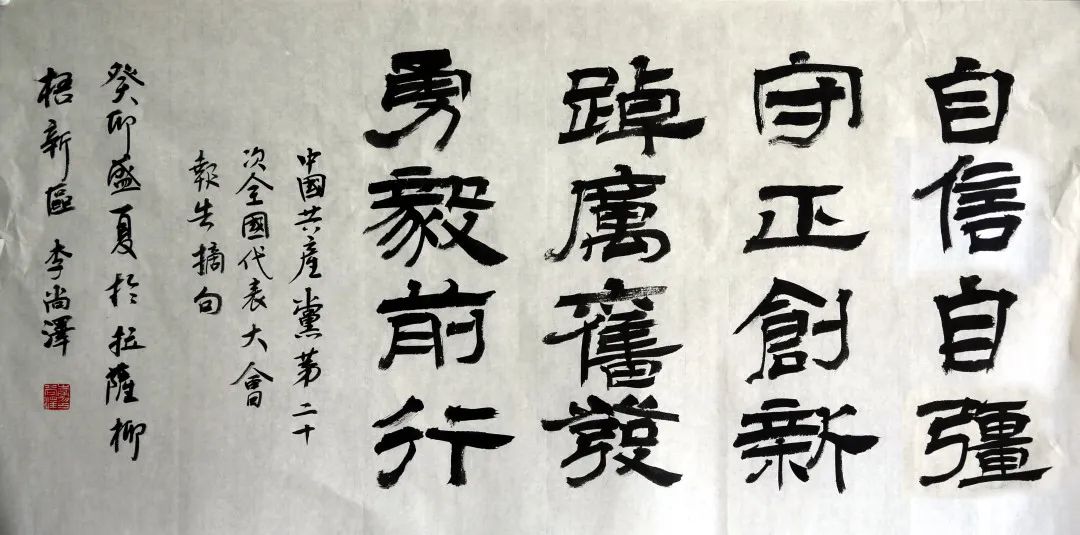 自信自彊
守正創新
踔厲奮發
勇毅前行
中國共產黨第二十
次全國代表大會
報告摘句
癸卯盛夏於拉薩柳
梧新區 李尚澤